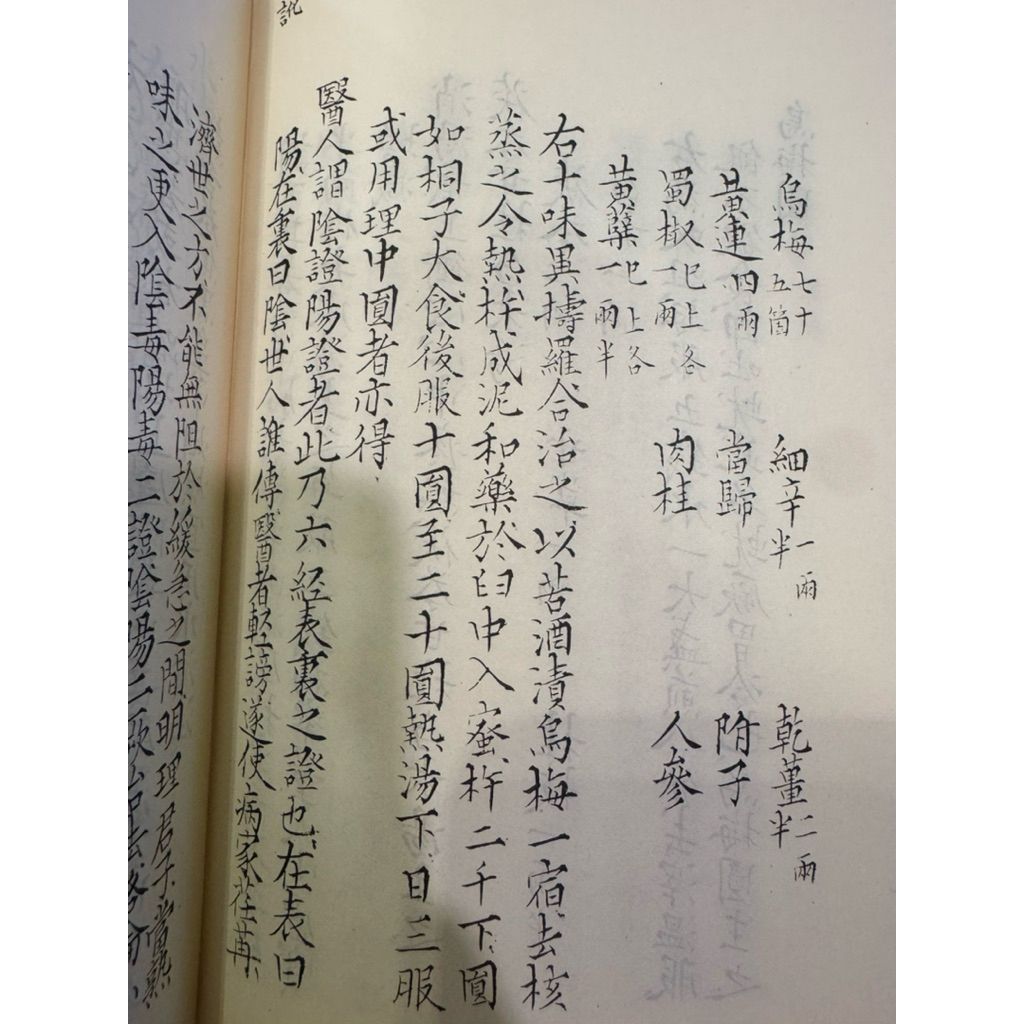 烏梅七十五箇 細辛一兩半 乾薑二兩半
黃連四兩 當歸 附子
蜀椒巳上各一兩 肉桂 人參
黃蘗巳上各一兩半
右十味異擣羅合治之以苦酒漬烏梅一宿去核
蒸之令熱杵成泥和藥於臼中入蜜杵二千下圓
如桐子大食後服十圓至二十圓熱湯下日三服
或用理中圓者亦得
醫人謂陰證陽證者此乃六經表裏之證也在表曰
陽在裏曰陰世人誰傳醫者輕謗遂使病家荏苒
訛
濟世之方不能無阻於緩急之間明理君子當熟
味之更入陰毒陽毒二證陰陽二